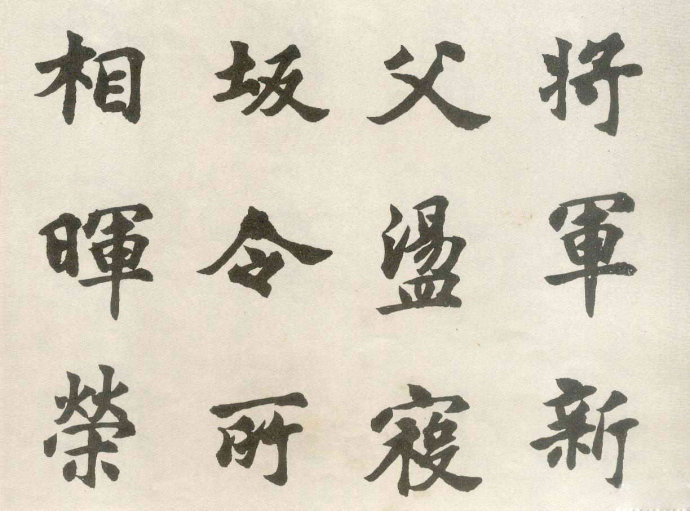 将軍新
父盪寇
坂令所
相暉榮